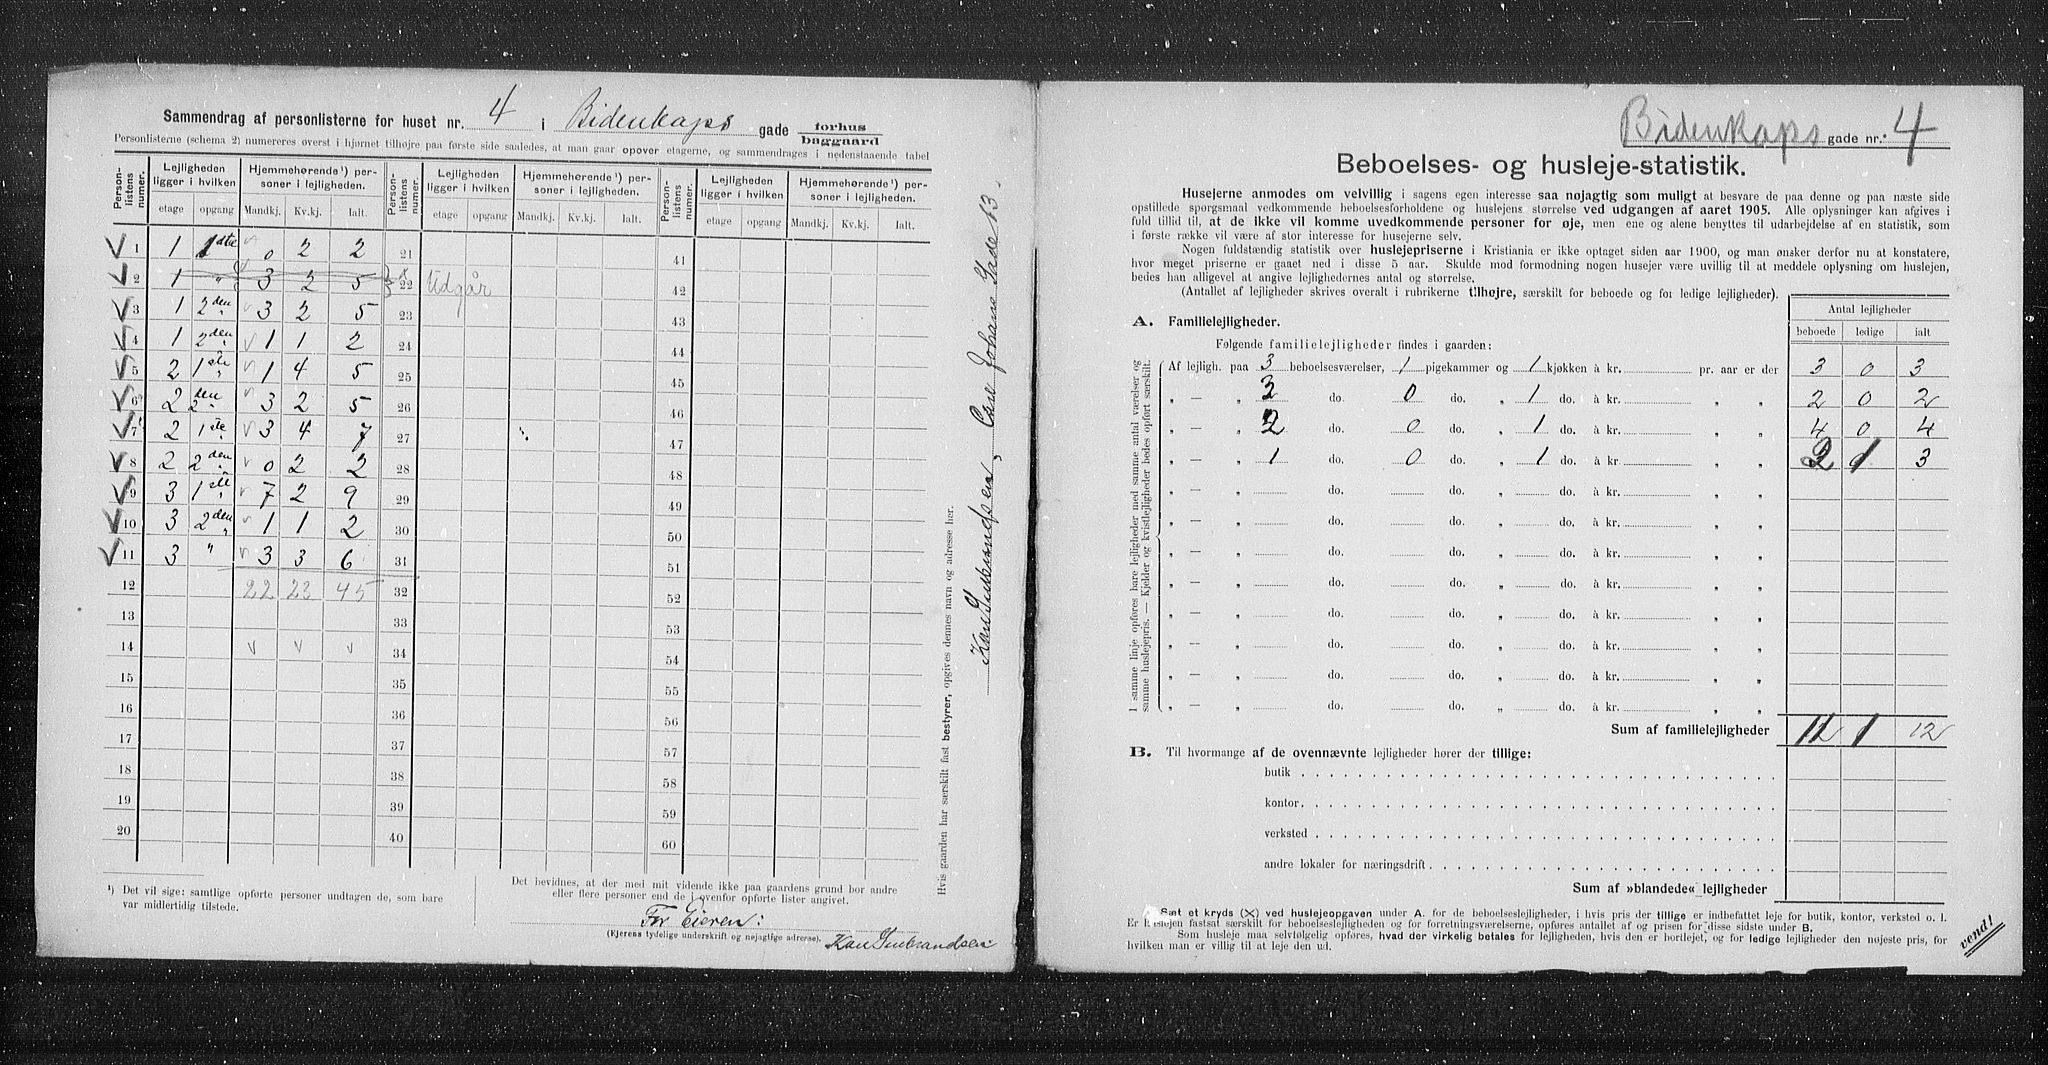 Sammendrag af personlisterne for huset nr. 4 i Bidenkaps gade forhus baggaard
Personlisterne (schema 2) numereres øverst i hjørnet tilhøjre paa første side saaledes, at man gaar opover etagerne, og sammendrages i nedenstaaende tabel
Person-listens numer. Lejligheden ligger i hvilken Hjemmehørende¹) personer i lejligheden. Person-listens numer. Lejligheden ligger i hvilken Hjemmehørende¹) personer i lejligheden. Person-listens numer. Lejligheden ligger i hvilken Hjemmehørende¹) personer i lejligheden.
etage opgang Mandkj. Kv.kj. Ialt. etage opgang Mandkj. Kv.kj. Ialt. etage opgang Mandkj. Kv.kj. Ialt.
1 1 1ste 0 2 2 21 41
2 1 " 3 2 5 22 Udgår 42
3 1 2den 3 2 5 23 43
4 1 2den 1 1 2 24 44
5 2 1ste 1 4 5 25 45
6 2 2den 3 2 5 26 46
7 2 1ste 3 4 7 27 47
8 2 2den 0 2 2 28 48
9 3 1ste 7 2 9 29 49
10 3 2den 1 1 2 30 50
11 3 " 3 3 6 31 51
12 22 23 45 32 52
13 33 53
14 v v v 34 54
15 35 55
16 36 56
17 37 57
18 38 58
19 39 59
20 40 60
¹) Det vil sige: samtlige opførte personer undtagen de, som bare
var midlertidig tilstede.
Det bevidnes, at der med mit vidende ikke paa gaardens grund bor andre
eller flere personer end de i ovenfor opførte lister angivet.
For Eieren:
(Ejerens tydelige underskrift og nøjagtige adresse).
Karl Gulbrandsen
Hvis gaarden har særskilt fast bestyrer, opgives dennes navn og adresse her.
Karl Gulbrandsen, Carl Johans Gade 13.
Bidenkaps gade nr.: 4
Beboelses- og husleje-statistik.
Husejerne anmodes om velvillig i sagens egen interesse saa nøjagtig som muligt at besvare de paa denne og paa næste side
opstillede spørgsmaal vedkommende beboelsesforholdene og huslejens størrelse ved udgangen af aaret 1905. Alle oplysninger kan afgives i
fuld tillid til, at de ikke vil komme uvedkommende personer for øje, men ene og alene benyttes til udarbejdelse af en statistik, som
i første række vil være af stor interesse for husejerne selv.
Nogen fuldstændig statistik over huslejepriserne i Kristiania er ikke optaget siden aar 1900, og man ønsker derfor nu at konstatere,
hvor meget priserne er gaaet ned i disse 5 aar. Skulde mod formodning nogen husejer være uvillig til at meddele oplysning om huslejen,
bedes han alligevel at angive lejlighedernes antal og størrelse.
(Antallet af lejligheder skrives overalt i rubrikerne tilhøjre, særskilt for beboede og for ledige lejligheder).
Antal lejligheder
beboede ledige ialt
A. Familielejligheder.
Følgende familielejligheder findes i gaarden:
I samme linje opføres bare lejligheder med samme antal værelser og
samme huslejepris. — Kjelder og kvistlejligheder bedes opført særskilt.
Af lejligh. paa 3 beboelsesværelser, 1 pigekammer og 1 kjøkken à kr. pr. aar er der 3 0 3
„ — „ 3 do. 0 do. „ 1 do. à kr. „ „ 2 0 2
„ — „ 2 do. 0 do. „ 1 do. à kr. „ „ 4 0 4
„ — „ 1 do. 0 do. „ 1 do. à kr. „ „ 2 1 3
„ — „ do. do. „ do. à kr. „ „
„ — „ do. do. „ do. à kr. „ „
„ — „ do. do. „ do. à kr. „ „
„ — „ do. do. „ do. à kr. „ „
„ — „ do. do. „ do. à kr. „ „
„ — „ do. do. „ do. à kr. „ „
„ — „ do. do. „ do. à kr. „ „
„ — „ do. do. „ do. à kr. „ „
Sum af familielejligheder 11 1 12
B. Til hvormange af de ovennævnte lejligheder hører der tillige:
butik
kontor
verksted
andre lokaler for næringsdrift
Sum af »blandede« lejligheder
Sæt et kryds (X) ved huslejeopgaven under A. for de beboelseslejligheder, i hvis pris der tillige er indbefattet leje for butik, kontor, verksted o. l.
Er huslejen fastsat særskilt for beboelseslejligheden og for forretningsværelserne, opføres antallet af og prisen for disse sidste under B.
Som husleje maa selvfølgelig opføres, hvad der virkelig betales for lejligheden, hvis den er bortlejet, og for ledige lejligheder den nøjeste pris, for
hvilken man er villig til at leje den ud.
vend!